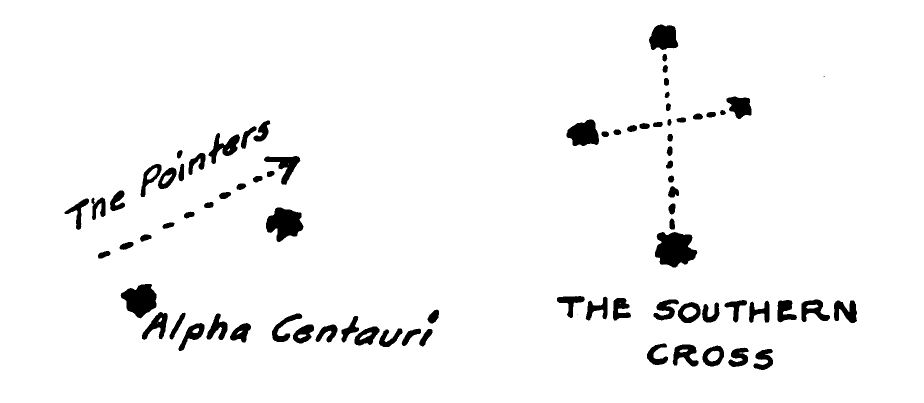 The Pointers
Alpha Centauri
THE SOUTHERN
CROSS